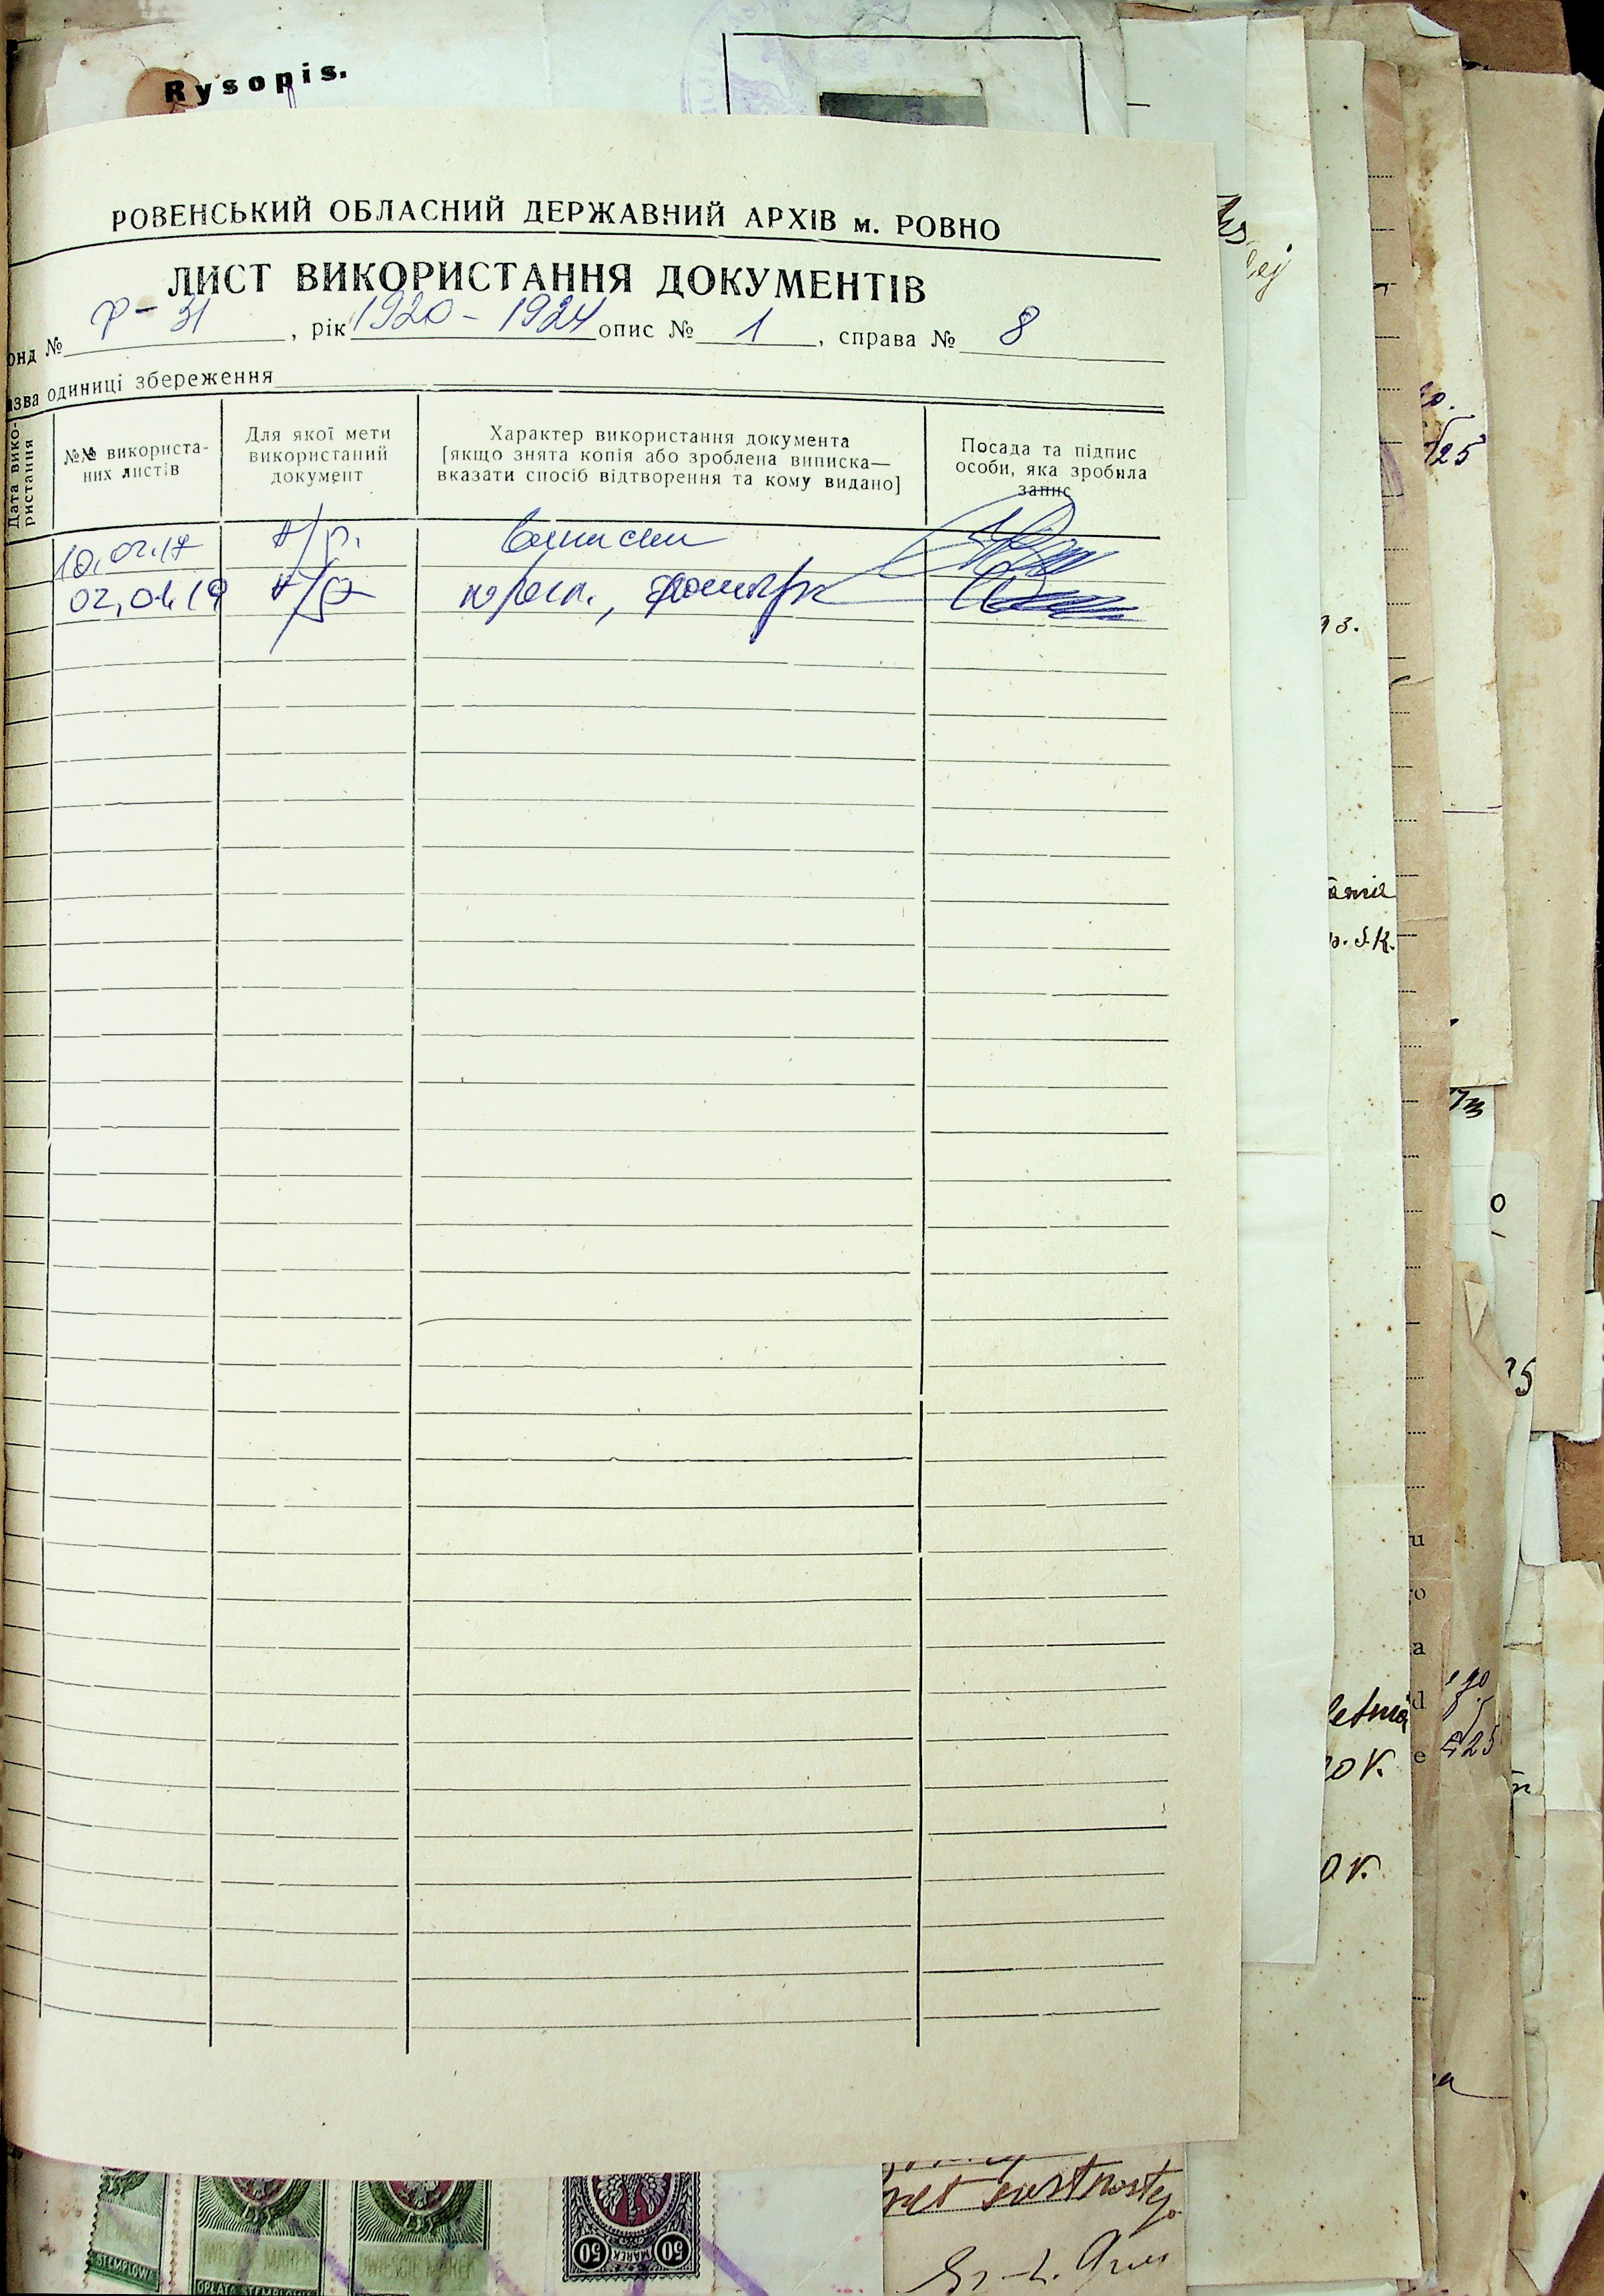 Rysopis.
РОВЕНСЬКИЙ ОБЛАСНИЙ ДЕРЖАВНИЙ АРХІВ м. РОВНО
ЛИСТ ВИКОРИСТАННЯ ДОКУМЕНТІВ
онд № Р-31, рік 1920-1924 опис № 1, справа № 8
азва одиниці збереження
Дата вико-
ристання
№№ використа-
них листів
Для якої мети
використаний
документ
Характер використання документа
[якщо знята копія або зроблена виписка—
вказати спосіб відтворення та кому видано]
Посада та підпис
особи, яка зробила
запис
10.02.17 н/р. виписки
02.04.19 н/р
25
93.
p. S.K.
o
25
u
o
a
d
e
letnia
0 K.
0 K.
ego
STEMPLOW
OPŁATA STEMPLOWA
50 MAREK 50